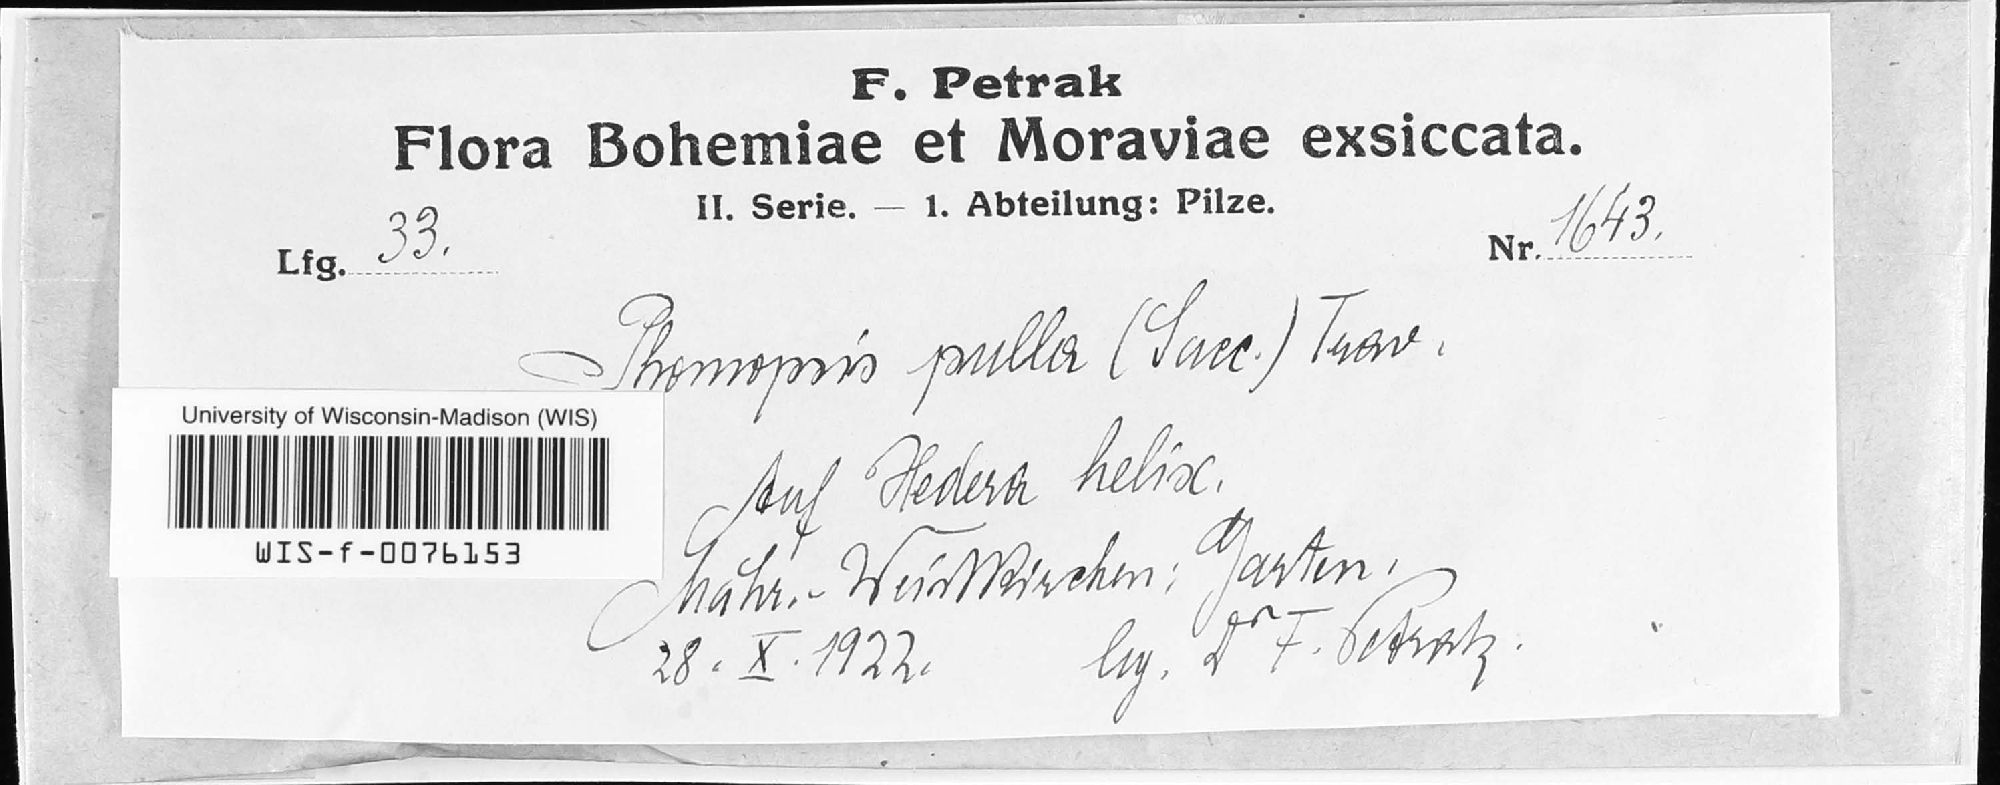 F. Petrak
Flora Bohemiae et Moraviae exsiccata.
II. Serie. — 1. Abteilung: Pilze.
Lfg. 33.
Nr. 1643.
Phomopsis pulla (Sacc.) Trav.
University of Wisconsin-Madison (WIS)
WIS-f-0076153
Auf Hedera helix.
Mähr.-Weisskirchen: Garten.
28. X. 1922.
leg. Dr F. Petrak.